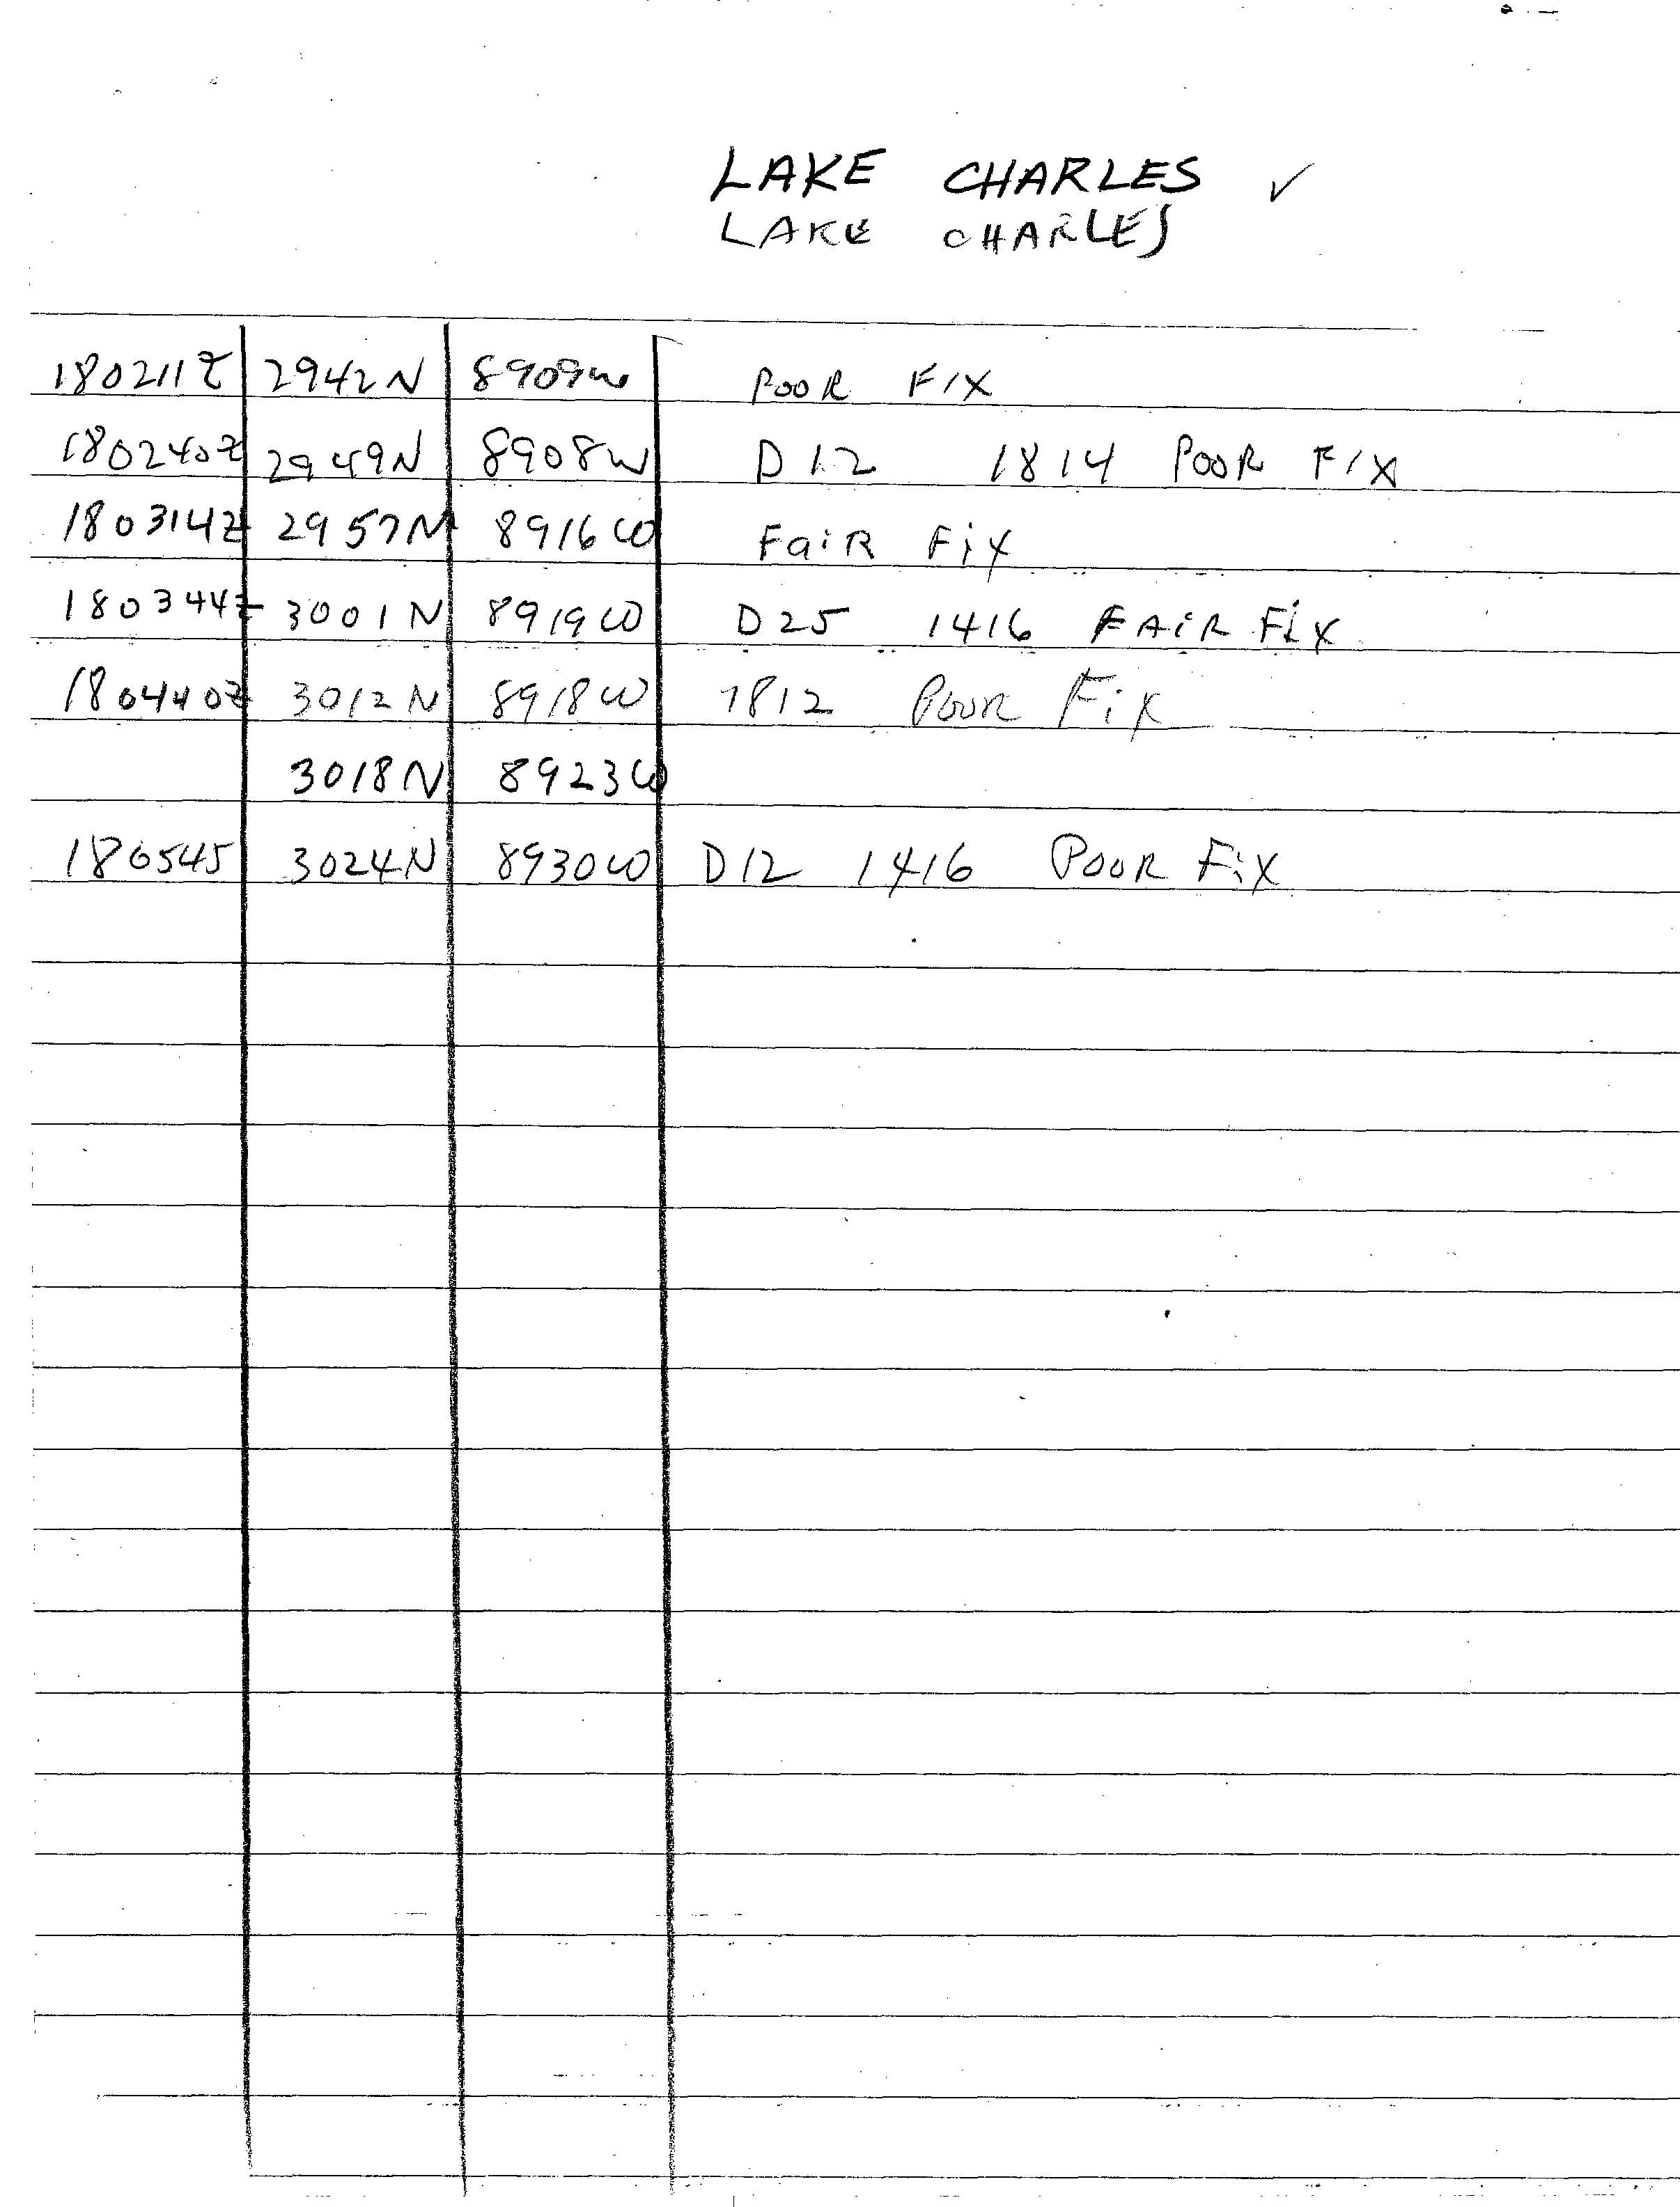 LAKE CHARLES ✓
LAKE CHARLES
180211Z 2942N 8909W POOR FIX
180240Z 2949N 8908W D12 1814 POOR FIX
180314Z 2957N 8916W FaiR Fix
180344Z 3001N 8919W D25 1416 FAiR Fix
180440Z 3012N 8918W 1812 Poor Fix
3018N 8923W
180545 3024N 8930W D12 1416 POOR Fix